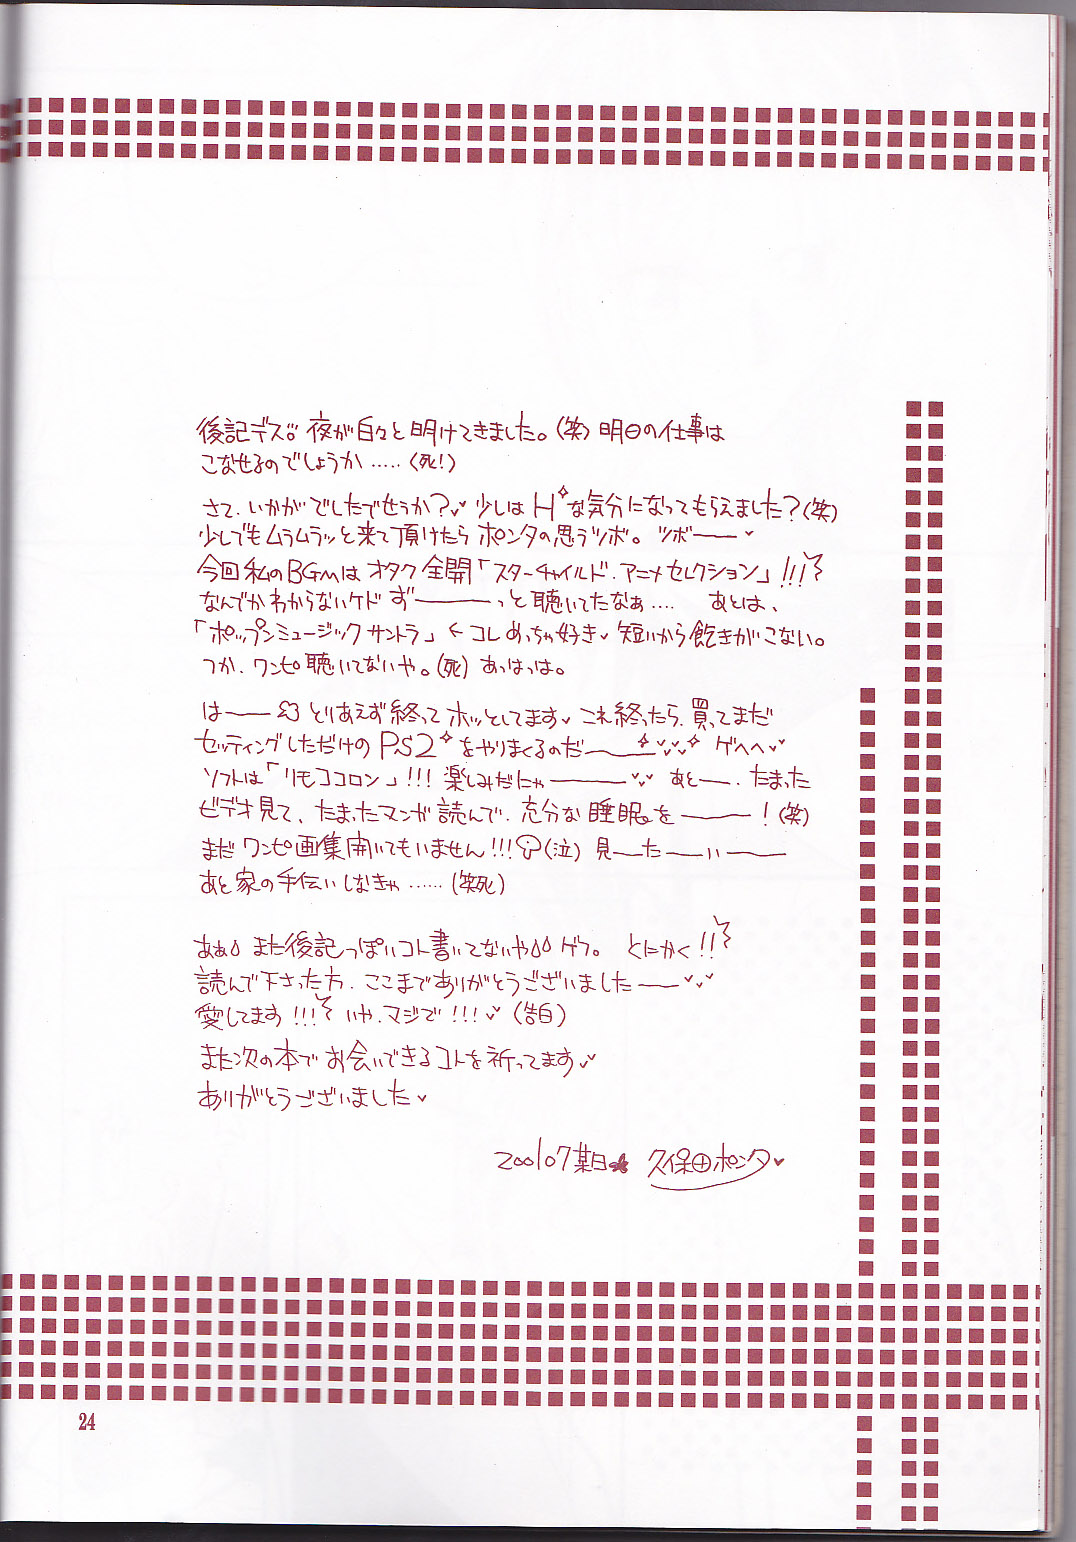 後記デス。夜が白々と明けてきました。(笑)明日の仕事は
こなせるのでしょうか‥‥‥(死!)
さて、いかがでしたでせうか?♥少しはH✧な気分になってもらえました?(笑)
少しでもムラムラッと来て頂けたらポンタの思うツボ。ツボ——♥
今回私のBGMはオタク全開「スターチャイルド・アニメセレクション」!!!
なんでかわからないケドず———っと聴いてたなぁ‥‥ あとは、
「ポップンミュージックサントラ」←コレめっちゃ好き♥短いから飽きがこない。
つか、ワンピ聴いてないや。(死)あっはっは。
は——とりあえず終ってホッとしてます♥これ終ったら、買ってまだ
セッティングしただけのPS2✧をやりまくるのだ——✧♥♥✧ゲヘヘ♥♥
ソフトは「リモココロン」!!!楽しみだにゃ———♥♥あと—、たまった
ビデオ見て、たまったマンガ読んで、充分な睡眠を———!(笑)
まだワンピ画集開いてもいません!!!(泣)見—た—い——
あと家の手伝いしなきゃ‥‥‥(笑死)
あぁ また後記っぽいコト書いてないや ゲフ。 とにかく!!
読んで下さった方、ここまでありがとうございました——♥♥
愛してます!!! いや、マジで!!!♥(告白)
また次の本でお会いできるコトを祈ってます♥
ありがとうございました♥
200107某日★ 久保田ポンタ♥
24